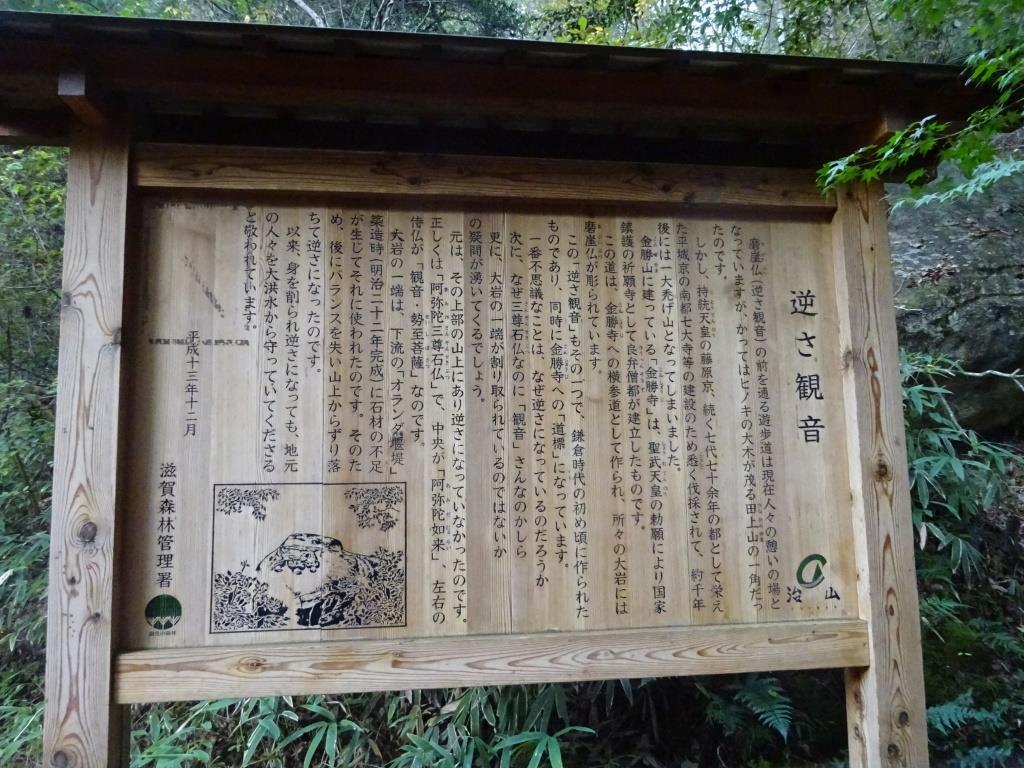 逆さ観音
磨崖仏(逆さ観音)の前を通る遊歩道は現在人々の憩いの場と
なっていますが、かつてはヒノキの大木が茂る田上山の一角だっ
たのです。
しかし、持統天皇の藤原京、続く七代七十余年の都として栄え
た平城京の南都七大寺等の建設のため悉く伐採されて、約千年
後には一大禿げ山となってしまいました。
金勝山に建っている「金勝寺」は、聖武天皇の勅願により国家
鎮護の祈願寺として良弁僧都が建立したものです。
この道は、金勝寺への横参道として作られ、所々の大岩には
磨崖仏が彫られています。
この、「逆さ観音」もその一つで、鎌倉時代の初め頃に作られた
ものであり、同時に金勝寺への「道標」になっています。
一番不思議なことは、なぜ逆さになっているのだろうか
次に、なぜ三尊石仏なのに「観音」さんなのかしら
更に、大岩の一端が割り取られているのではないか
の疑問が湧いてくるでしょう。
元は、その上部の山上にあり逆さになっていなかったのです。
正しくは「阿弥陀三尊石仏」で、中央が「阿弥陀如来」、左右の
侍仏が「観音・勢至菩薩」なのです。
大岩の一端は、下流の「オランダ堰堤」
築造時(明治二十二年完成)に石材の不足
が生じてそれに使われたのです。そのた
め、後にバランスを失い山上からずり落
ちて逆さになったのです。
以来、身を削られ逆さになっても、地元
の人々を大洪水から守っていてくださる
と敬われています。
平成十三年十二月
滋賀森林管理署
治山